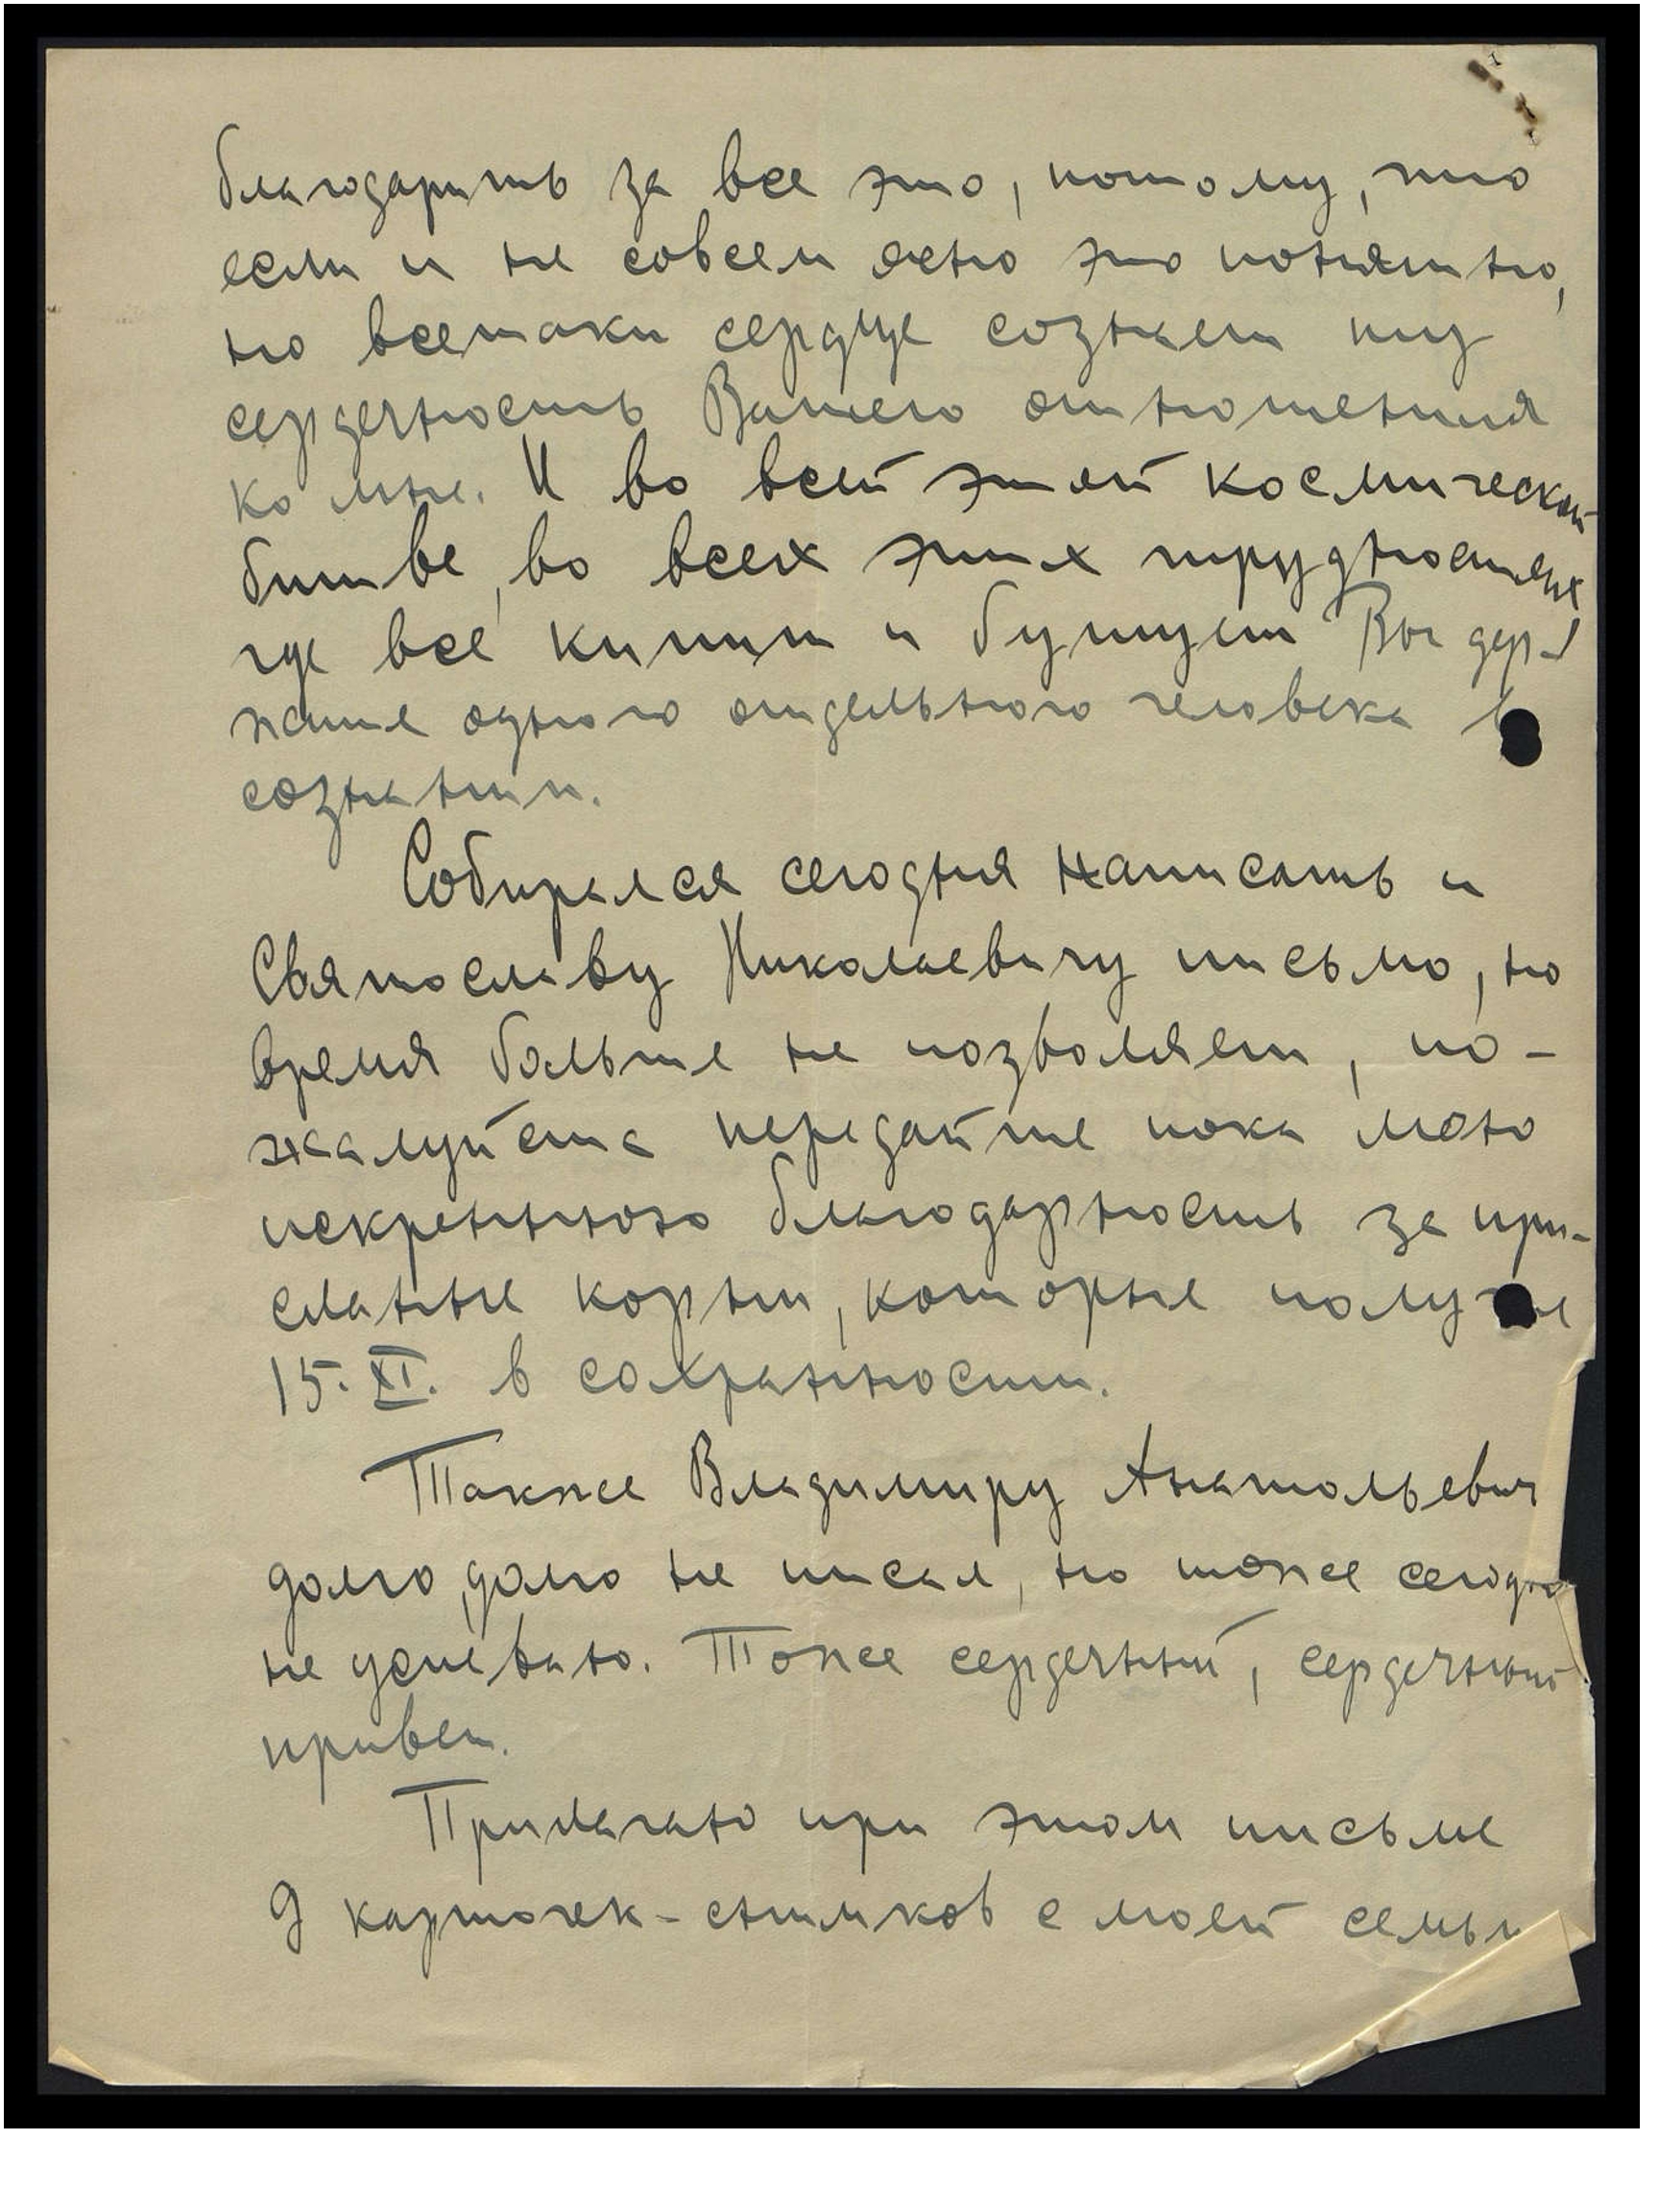 благодарить за все это, потому, что
если и не совсем ясно это понятно,
но всетаки сердце сознает ту
сердечность Вашего отношения
ко мне. И во всей этой космической
битве, во всех этих трудностях
где все кипит и бушует Вы дер-
жите одного отдельного человека в
сознании.
Собирался сегодня написать и
Святославу Николаевичу письмо, но
время больше не позволяет, по-
жалуйста передайте пока мою
искреннюю благодарность за при-
сланные корни, которые
15.XI. в сохранности.
Также Владимиру Анатольевич
долго, долго не писал, но тоже сегодня
не успеваю. Тоже сердечный, сердечный
привет.
Прилагаю при этом письме
9 карточек-снимков с моей семьи